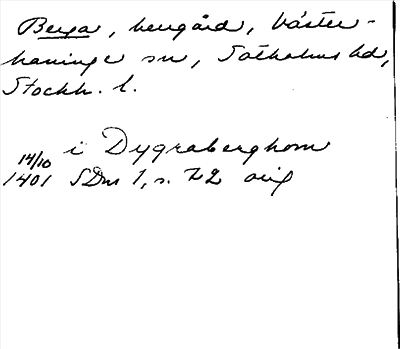 Berga, herrgård, Väster-
haninge sn, Sotholms hd,
Stockh. l.
i Dygraberghom
14/10
1401 SDns 1, s. 22 orig